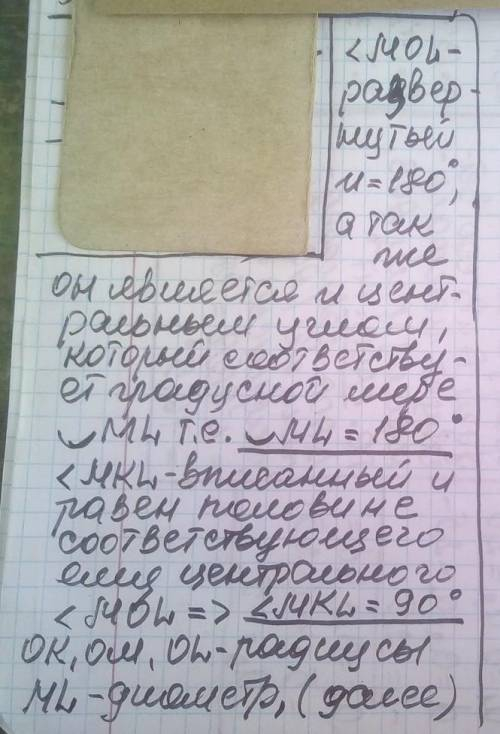 <MOL-
развер-
нутый
и=180°,
а так
же
он является и цент-
ральным углом,
который соответству-
ет градусной мере
◡ML т.е. ◡ML = 180°
<MKL-вписанный и
равен половине
соответствующего
ему центрального
<MOL => <MKL = 90°
OK, OM, OL-радиусы
ML-диометр, (далее)